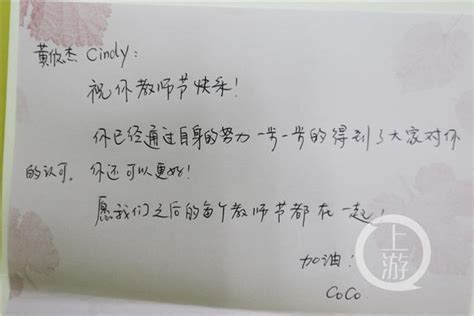 黄俊杰 Cindy:
祝你教师节快乐!
你已经通过自身的努力一步一步的得到了大家对你
的认可。你还可以更好!
愿我们之后的每个教师节都在一起!
加油!
CoCo
上游